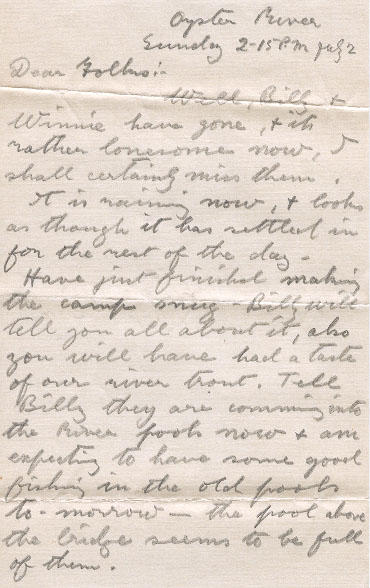 Oyster River
Sunday 2-15 P.M. July 2
Dear Folks:-
Well, Billy &
Winnie have gone, & its
rather lonesome now, I
shall certainly miss them.
It is raining now, & looks
as though it has settled in
for the rest of the day -
Have just finished making
the camp snug - Billy will
tell you all about it, also
you will have had a taste
of our river trout. Tell
Billy they are comming into
the River pools now & am
expecting to have some good
fishing in the old pools
to-morrow - the pool above
the bridge seems to be full
of them.